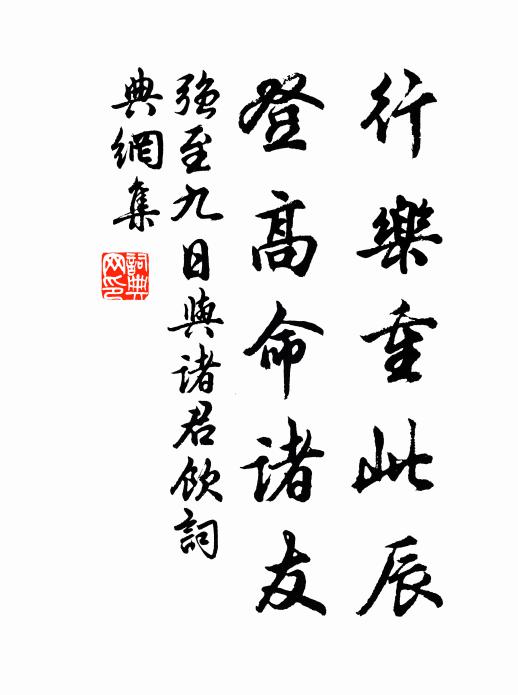 行樂重此辰
登高命諸友
強至九日與諸君飲詞
典網集
詞典网印